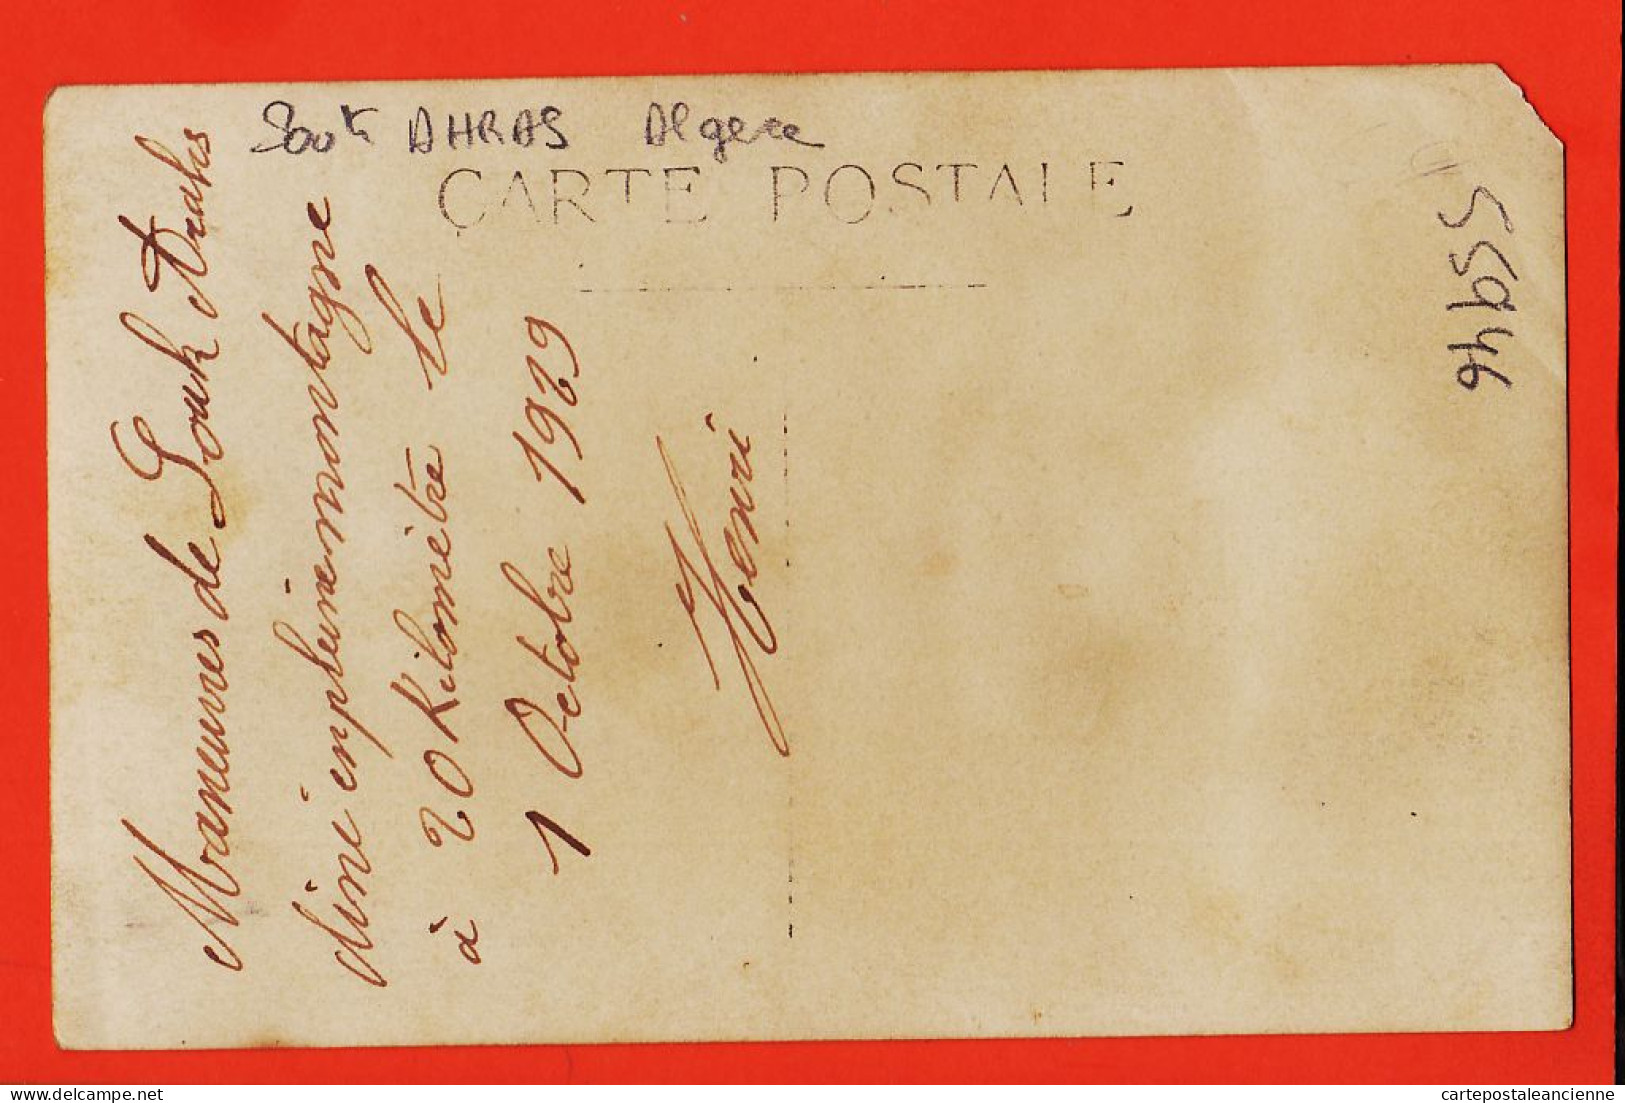 Souk AHRAS Algerie
CARTE POSTALE
Maneuvres de Souk Arahs
diné en pleine montagne
à 20 Kilomètre le
1 Octobre 1929
Henri
55946
cartepostaleancienne